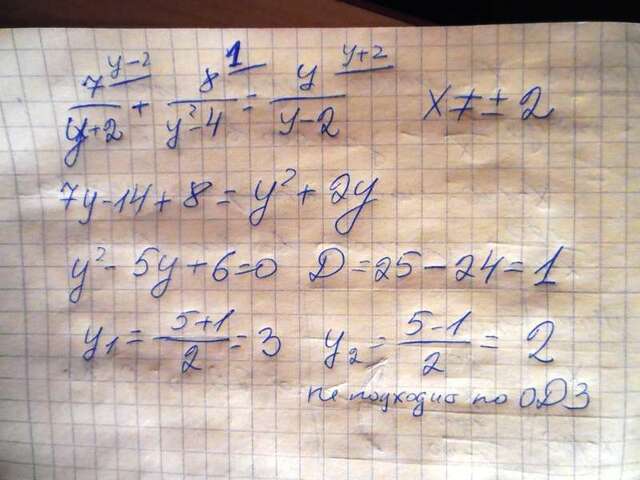 7^(y-2)/(y+2) + 8^1/(y²-4) = y^(y+2)/(y-2) x ≠ ± 2
7y-14+8=y²+2y
y²-5y+6=0 D=25-24=1
y₁=(5+1)/2=3 y₂=(5-1)/2=2
не подходит по ОДЗ